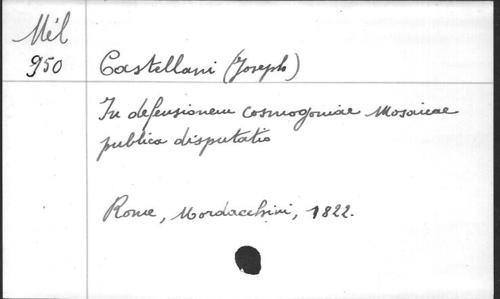 Mél
950
Castellani (Joseph)
In defensionem cosmogoniae Mosaicae
publica disputatio
Rome, Mordacchini, 1822.